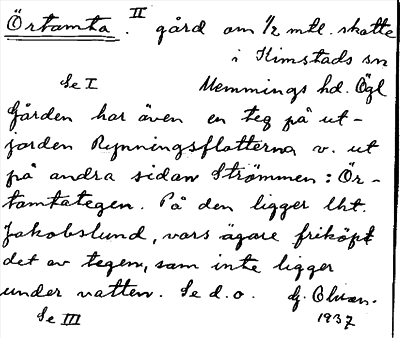 Örtamta. II gård om 1/2 mtl. skatte
i Kimstads sn
Se I Memmings hd. Ögl
Gården har även en teg på ut-
jorden Rynningsflotterna v. ut
på andra sidan Strömmen: Ör-
tamtategen. På den ligger lht.
Jakobslund, vars ägare friköpt
det av tegen, som inte ligger
under vatten. Se d.o. G. Olsson.
Se III 1937